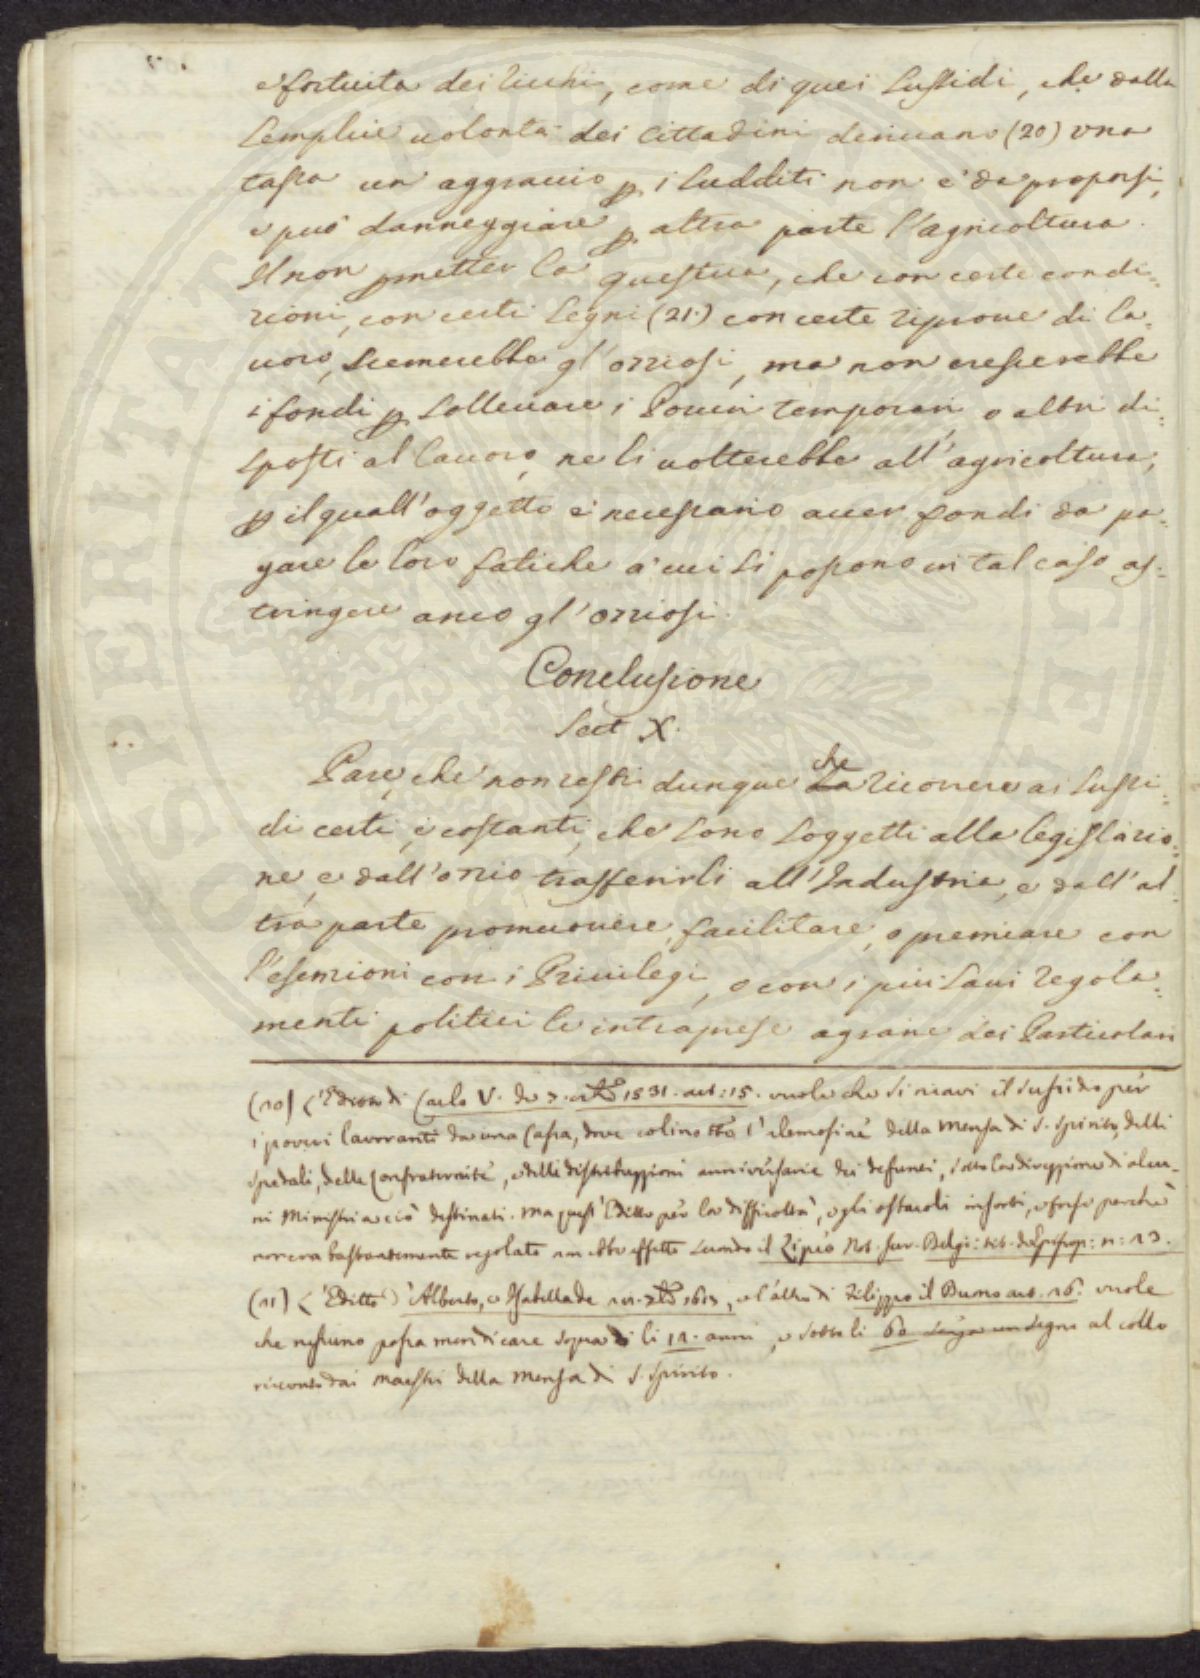 e fortuita dei ricchi, come di quei sussidi, che dalla
semplice uolontà dei Cittadini deriuano (20) una
tassa un aggrauio p. i sudditi non è da proporsi,
e può danneggiare p. altra parte l'agricoltura.
Il non pmetter la questua, che con certe condi=
zioni, con certi segni (21.) con certe riproue di la=
uoro, scemerebbe gl'ozziosi, ma non crescerebbe
i fondi p. solleuare i Poueri temporari, o altri di=
sposti al lauoro, ne li uolterebbe all'agricoltura,
p. il quall'oggetto è necessario auer fondi da pa=
gare le loro fatiche a cui si possono in tal caso as=
tringere anco gl'ozziosi.
Conclusione
Sect X.
Pare, che non resti dunque che ricorrere ai sussi=
di certi, e costanti, che sono soggetti alla legislazio=
ne, e dall'ozio trasferirli all'Industria, e dall'al=
tra parte promuouere, facilitare, o premiare con
l'esenzioni con i Priuilegi, o con i più saui regola=
menti politici le intraprese agrarie dei Particolari
(20) L'Editto di Carlo V. de 7. 1531. art: 15. vuole che si ricavi il sussidio per
i poveri lavoranti da una Cassa, dove colino l'elemosine della Mensa di S. Spirito, delli
Spedali, delle Confraternite, e delle distribuzzioni anniversarie dei defunti, sotto la direzzione di alcu=
ni Ministri a ciò destinati. Ma quest'Editto per le difficoltà, e gli ostacoli insorti, e forse perchè
non era bastantemente regolato non ebbe effetto secondo il Zipeo Not. Jur. Belgi: n: 13.
(21) L'Editto d'Alberto, e Isabella de 1613, e l'altro di Filippo il Buono art. 16. vuole
che nessuno possa mendicare sopra li 12. anni, e sotto li 60 senza un segno al collo
riceuto dai Maestri della Mensa di S. Spirito.
PROSPERITATI